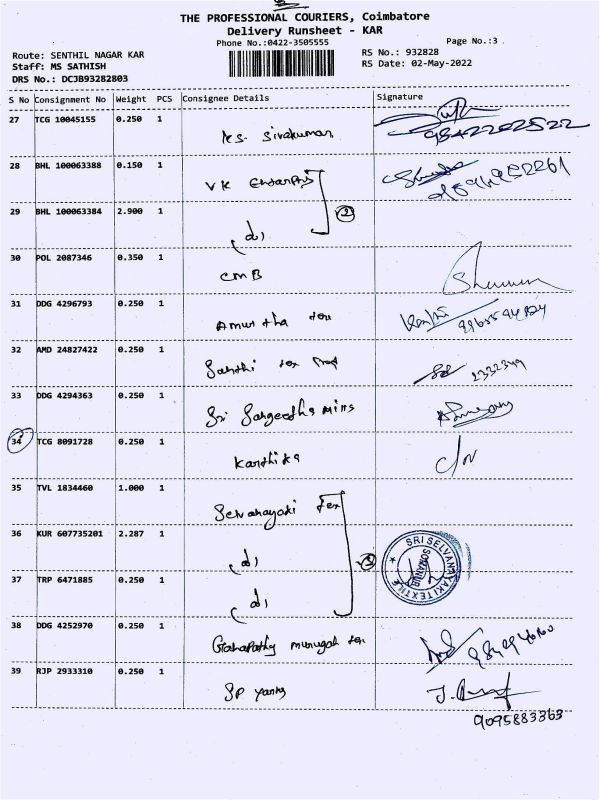 THE PROFESSIONAL COURIERS, Coimbatore
Delivery Runsheet - KAR
Phone No.:0422-3505555
Page No.:3
Route: SENTHIL NAGAR KAR
RS No.: 932828
Staff: MS SATHISH
RS Date: 02-May-2022
DRS No.: DCJB93282803
S No Consignment No Weight PCS Consignee Details Signature
27 TCG 10045155 0.250 1
KS. Sivakumar
9842202522
28 BHL 100063388 0.150 1
VK
29 BHL 100063384 2.900 1
(d)
2
30 POL 2087346 0.350 1
CMB
31 DDG 4296793 0.250 1
Amurtha tex
32 AMD 24827422 0.250 1
Santhi tex
2332349
33 DDG 4294363 0.250 1
Sri Sangeetha mills
34 TCG 8091728 0.250 1
Karthika
35 TVL 1834460 1.000 1
Selvanayaki Tex
36 KUR 607735201 2.287 1
(d)
3
SRI SELVANAYAKI TEXTILE
SOMANUR
37 TRP 6471885 0.250 1
(d)
38 DDG 4252970 0.250 1
Ganapathy murugan tex
39 RJP 2933310 0.250 1
SP yarns
9095883363